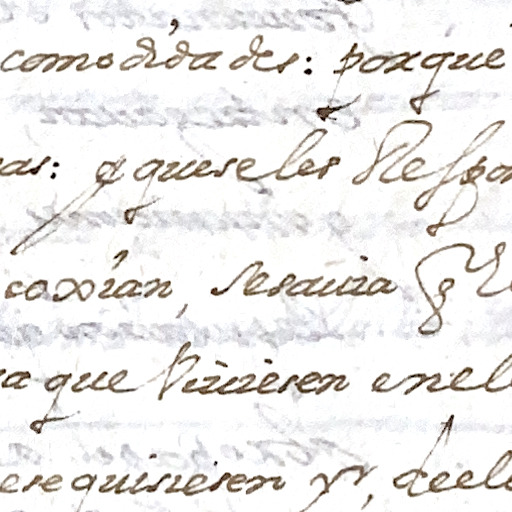 comodidades: porque
as: q quese les Respon
coxrian, seauia
a que Viuiesen enel
ese quisiesen yr, deel